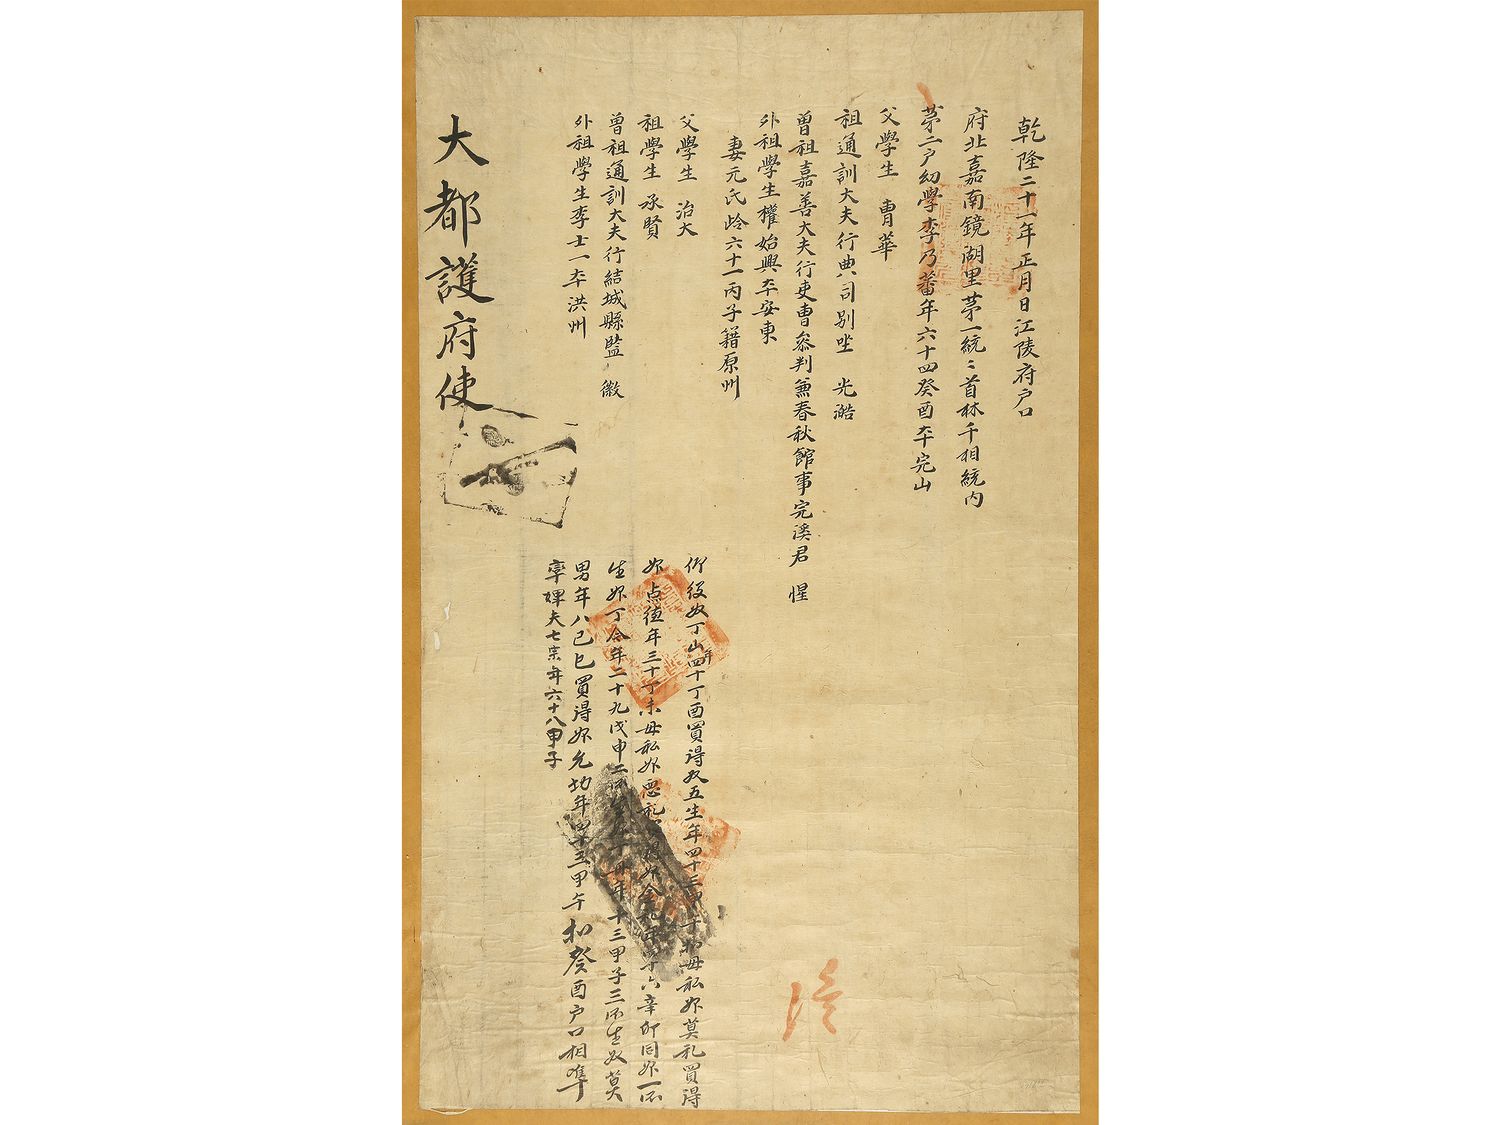 乾隆二十一年正月日江陵府户口
府北嘉南鏡湖里苐一統々首林千相統内
苐二户幼學李乃蕃年六十四癸酉夲完山
父學生 曺華
祖通訓大夫行典司别坐 光澔
曽祖嘉善大夫行吏曺叅判兼春秋館事完溪君 惺
外祖學生權始興夲安東
妻元氏齡六十一丙子籍原州
父學生 治大
祖學生 承賢
曽祖通訓大夫行結城縣監 徽
外祖學生李士一夲洪州
仰役奴丁山年四十丁酉買得奴五生年四十三甲午 母私婢莫礼買得
婢点德年三十丁未母私婢 礼 婢今礼年四十六辛卯同婢一所
生婢丁今年二十九戊申二所生 年十三甲子三所生奴莫
男年八己巳買得婢允 年四十三甲午 癸酉户口相凖
率婢夫七宗年六十八甲子
大都護府使